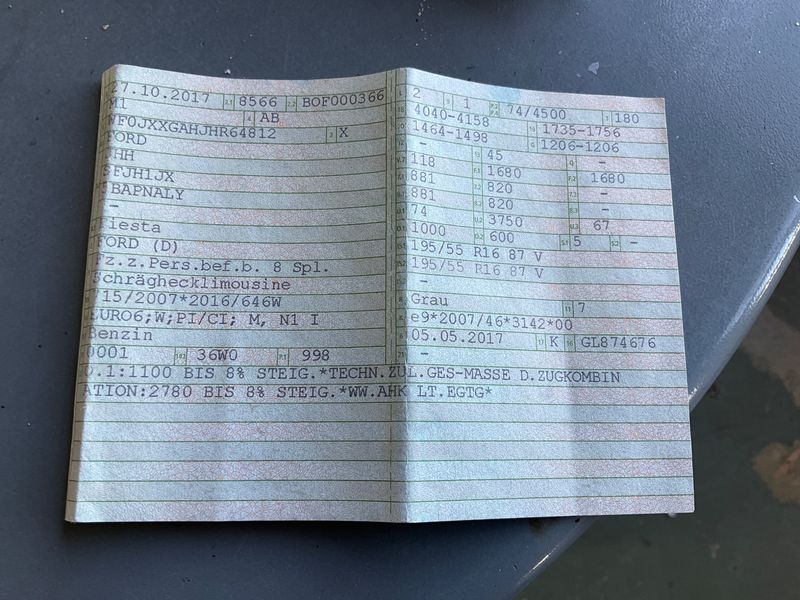 27.10.2017 2.1 8566 2.2 BOF000366
M1 4 AB
WF0JXXGAHJHR64812 3 X
FORD
JHH
SFJH1JX
5BAPNALY
-
Fiesta
FORD (D)
Fz.z.Pers.bef.b. 8 Spl.
Schrägheckлimousine
715/2007*2016/646W
EURO6;W;PI/CI; M, N1 I
Benzin
0001 36W0 P.1 998
O.1:1100 BIS 8% STEIG.*TECHN.ZUL.GES-MASSE D.ZUGKOMBIN
ATION:2780 BIS 8% STEIG.*WW.AHK LT.EGTG*
L 2 9 1 74/4500 T 180
18 4040-4158 19 1735-1756
20 1464-1498 G 1206-1206
12 - 13 45 Q -
V.7 118 F.1 1680 F.2 1680
7.1 881 7.2 820 7.3 -
8.1 881 8.2 820 8.3 -
U.1 74 U.2 3750 U.3 67
O.1 1000 O.2 600 S.1 5 S.2 -
15.1 195/55 R16 87 V
15.2 195/55 R16 87 V
-
R Grau 11 7
K e9*2007/46*3142*00
6 05.05.2017 17 K 16 GL874676
21 -